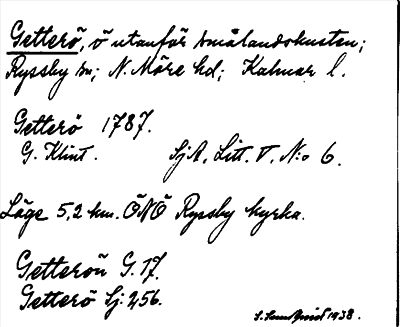 Getterö, ö utanför smålandskusten;
Ryssby sn; N. Möre hd; Kalmar l.
Getterö 1787.
G. Klint. SjA, Litt. V, N:o 6.
Läge 5,2 km. ÖNÖ Ryssby kyrka.
Getterön G. 17.
Getterö Sj: 256.
1938.